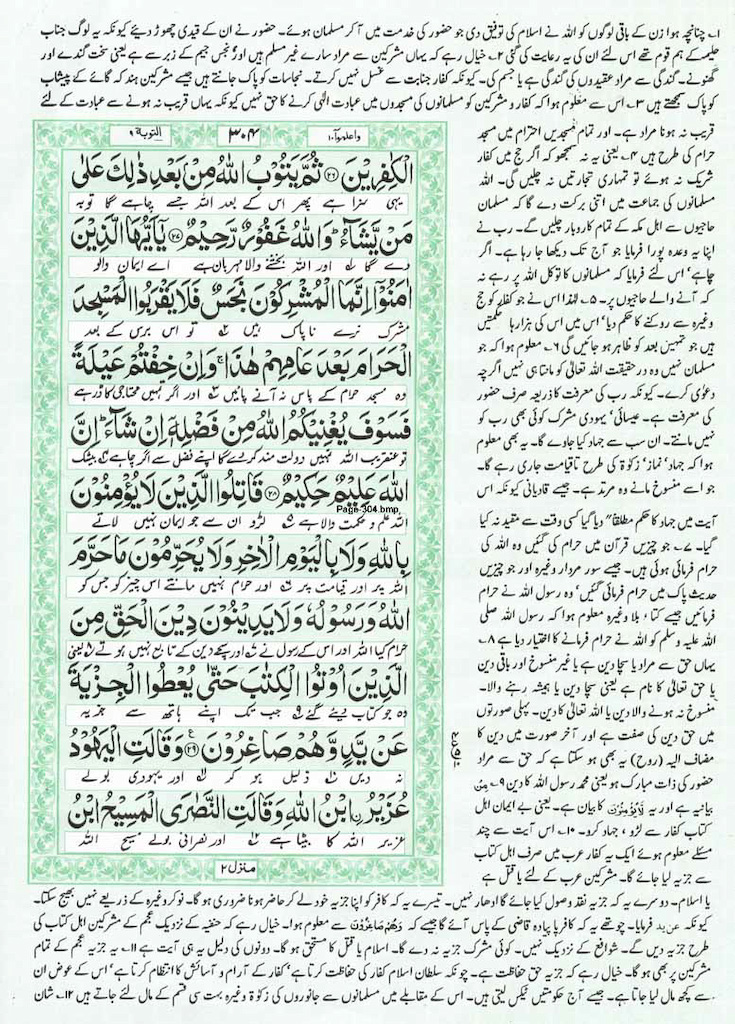 ۱۔ چنانچہ ہوازن کے باقی لوگوں کو اللہ نے اسلام کی توفیق دی جو حضور کی خدمت میں آ کر مسلمان ہوئے۔ حضور نے ان کے قیدی چھوڑ دیئے کیونکہ یہ لوگ جناب
حلیمہ کے ہم قوم تھے اس لئے ان کی یہ رعایت کی گئی ۲۔ خیال رہے کہ یہاں مشرکین سے مراد سارے غیر مسلم ہیں اور نجس جیم کے زبر سے ہے یعنی سخت گندے اور
گھنونے۔ گندگی سے مراد عقیدوں کی گندگی ہے یا جسم کی۔ کیونکہ کفار جنابت سے غسل نہیں کرتے۔ نجاسات کو پاک جانتے ہیں جیسے مشرکین ہند کہ گائے کے پیشاب
کو پاک سمجھتے ہیں ۳۔ اس سے معلوم ہوا کہ کفار و مشرکین کو مسلمانوں کی مسجدوں میں عبادت الٰہی کرنے کا حق نہیں کیونکہ یہاں قریب نہ ہونے سے عبادت کے لئے
قریب نہ ہونا مراد ہے۔ اور تمام مسجدیں احترام میں مسجد
حرام کی طرح ہیں ۴۔ یعنی یہ نہ سمجھو کہ اگر حج میں کفار
شریک نہ ہوئے تو تمہاری تجارتیں نہ چلیں گی۔ اللہ
مسلمانوں کی جماعت میں اتنی برکت دے گا کہ مسلمان
حاجیوں سے اہل مکہ کے تمام کاروبار چلیں گے۔ رب نے
اپنا یہ وعدہ پورا فرمایا جو آج تک دیکھا جا رہا ہے۔ اگر
چاہے' اس لئے فرمایا کہ مسلمانوں کا توکل اللہ پر رہے نہ
کہ آنے والے حاجیوں پر۔ ۵۔ لہٰذا اس نے جو کفار کو حج
وغیرہ سے روکنے کا حکم دیا' اس میں اس کی ہزارہا حکمتیں
ہیں جو تمہیں بعد کو ظاہر ہو جائیں گی ۶۔ معلوم ہوا کہ جو
مسلمان نہیں وہ در حقیقت اللہ تعالیٰ کو مانتا ہی نہیں اگرچہ
دعوٰی کرے۔ کیونکہ رب کی معرفت کا ذریعہ صرف حضور
کی معرفت ہے۔ عیسائی' یہودی مشرک کوئی بھی رب کو
نہیں مانتے۔ ان سب سے جہاد کیا جاوے گا۔ یہ بھی معلوم
ہوا کہ جہاد' نماز' زکوٰۃ کی طرح تاقیامت جاری رہے گا۔
جو اسے منسوخ مانے وہ مرتد ہے۔ جیسے قادیانی کیونکہ اس
آیت میں جہاد کا حکم مطلقاً" دیا گیا کسی وقت سے مقید نہ کیا
گیا۔ ۷۔ جو چیزیں قرآن میں حرام کی گئیں وہ اللہ کی
حرام فرمائی ہوئی ہیں۔ جیسے سور مردار وغیرہ اور جو چیزیں
حدیث پاک میں حرام فرمائی گئیں' وہ رسول اللہ نے حرام
فرمائیں جیسے کتا' بلا وغیرہ معلوم ہوا کہ رسول اللہ صلی
اللہ علیہ وسلم کو اللہ نے حرام فرمانے کا اختیار دیا ہے ۸۔
یہاں حق سے مراد یا سچا دین ہے یا غیر منسوخ اور باقی دین
یا حق تعالیٰ کا نام ہے یعنی سچا دین یا ہمیشہ رہنے والا۔
منسوخ نہ ہونے والا دین یا اللہ تعالیٰ کا دین۔ پہلی صورتوں
میں حق دین کی صفت ہے اور آخر صورت میں دین کا
مضاف الیہ (روح) یہ بھی ہو سکتا ہے کہ حق سے مراد
حضور کی ذات مبارک ہو یعنی محمد رسول اللہ کا دین ۹۔ مِنْ
بیانیہ ہے اور یہ لَایُؤْمِنُوْنَ کا بیان ہے۔ یعنی بے ایمان اہل
کتاب کفار سے لڑو' جہاد کرو۔ ۱۰۔ اس آیت سے چند
مسئلے معلوم ہوئے ایک یہ کہ کفار عرب میں صرف اہل کتاب
سے جزیہ لیا جائے گا۔ مشرکین عرب کے لئے یا قتل ہے
واعلموا ۱۰
۳۰۴
التوبۃ ۹
الْكٰفِرِیْنَ ﴿۲۶﴾ ثُمَّ یَتُوْبُ اللّٰهُ مِنْۢ بَعْدِ ذٰلِكَ عَلٰى
یہی سزا ہے پھر اس کے بعد اللہ جسے چاہے گا توبہ
مَنْ یَّشَآءُ ؕ وَاللّٰهُ غَفُوْرٌ رَّحِیْمٌ ﴿۲۷﴾ یٰۤاَیُّهَا الَّذِیْنَ
دے گا اور اللہ بخشنے والا مہربان ہے اے ایمان والو
اٰمَنُوْۤا اِنَّمَا الْمُشْرِكُوْنَ نَجَسٌ فَلَا یَقْرَبُوا الْمَسْجِدَ
مشرک نرے ناپاک ہیں تو اس برس کے بعد
الْحَرَامَ بَعْدَ عَامِهِمْ هٰذَا ۚ وَاِنْ خِفْتُمْ عَیْلَةً
وہ مسجد حرام کے پاس نہ آنے پائیں اور اگر تمہیں محتاجی کا ڈر ہے
فَسَوْفَ یُغْنِیْكُمُ اللّٰهُ مِنْ فَضْلِهٖۤ اِنْ شَآءَ ؕ اِنَّ
تو عنقریب اللہ تمہیں دولت مند کر دے گا اپنے فضل سے اگر چاہے بیشک
اللّٰهَ عَلِیْمٌ حَكِیْمٌ ﴿۲۸﴾ قَاتِلُوا الَّذِیْنَ لَا یُؤْمِنُوْنَ
Page-304.bmp,
اللہ علم و حکمت والا ہے لڑو ان سے جو ایمان نہیں لاتے
بِاللّٰهِ وَلَا بِالْیَوْمِ الْاٰخِرِ وَلَا یُحَرِّمُوْنَ مَا حَرَّمَ
اللہ پر اور قیامت پر اور حرام نہیں مانتے اس چیز کو جس کو
اللّٰهُ وَرَسُوْلُهٗ وَلَا یَدِیْنُوْنَ دِیْنَ الْحَقِّ مِنَ
حرام کیا اللہ اور اس کے رسول نے اور سچے دین کے تابع نہیں ہوتے یعنی
الَّذِیْنَ اُوْتُوا الْكِتٰبَ حَتّٰى یُعْطُوا الْجِزْیَةَ
وہ جو کتاب دیئے گئے جب تک اپنے ہاتھ سے جزیہ
عَنْ یَّدٍ وَّهُمْ صَاغِرُوْنَ ﴿۲۹﴾ وَقَالَتِ الْیَهُوْدُ
نہ دیں ذلیل ہو کر اور یہودی بولے
عُزَیْرُ ۨ ابْنُ اللّٰهِ وَقَالَتِ النَّصٰرَى الْمَسِیْحُ ابْنُ
عزیر اللہ کا بیٹا ہے اور نصرانی بولے مسیح اللہ
منزل ۲
یا اسلام۔ دوسرے یہ کہ جزیہ نقد وصول کیا جائے گا ادھار نہیں۔ تیسرے یہ کہ کافر کو اپنا جزیہ خود لے کر حاضر ہونا ضروری ہو گا۔ نوکر وغیرہ کے ذریعے نہیں بھیج سکتا۔
کیونکہ عن ید فرمایا۔ چوتھے یہ کہ کافر پا پیادہ قاضی کے پاس آئے گا جیسے کہ وَھُمْ صَاغِرُوْنَ سے معلوم ہوا۔ خیال رہے کہ حنفیہ کے نزدیک عجم کے مشرکین اہل کتاب کی
طرح جزیہ دیں گے۔ شوافع کے نزدیک نہیں۔ کوئی مشرک جزیہ نہ دے گا۔ اسلام یا قتل کا مستحق ہو گا۔ دونوں کی دلیل یہ ہی آیت ہے ۱۱۔ یہ جزیہ عجم کے تمام
مشرکین پر بھی ہو گا۔ خیال رہے کہ جزیہ حق حفاظت ہے۔ چونکہ سلطان اسلام کفار کی حفاظت کرتا ہے' کفار کے آرام و آسائش کا انتظام کرتا ہے' اس کے عوض ان
سے کچھ مال لیا جاتا ہے۔ جیسے آج حکومتیں ٹیکس لیتی ہیں۔ اس کے مقابلے میں مسلمانوں سے جانوروں کی زکوٰۃ وغیرہ بہت سی قسم کے مال لئے جاتے ہیں ۱۲۔ شان